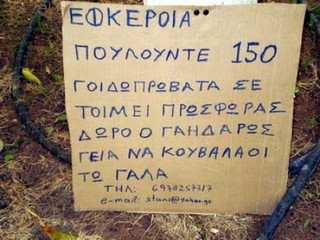 ΕΦΚΕΡΟΙΑ
ΠΟΥΛΟΥΝΤΕ 150
ΓΟΙΔΟΠΡΩΒΑΤΑ ΣΕ
ΤΟΙΜΕΙ ΠΡΟΣΦΩΡΑΣ
ΔΩΡΟ Ο ΓΑΗΔΑΡΩΣ
ΓΕΙΑ ΝΑ ΚΟΥΒΑΛΑΟΙ
ΤΩ ΓΑΛΑ
ΤΗΛ: 6978257717
e-mail: stani@yahoo.gr